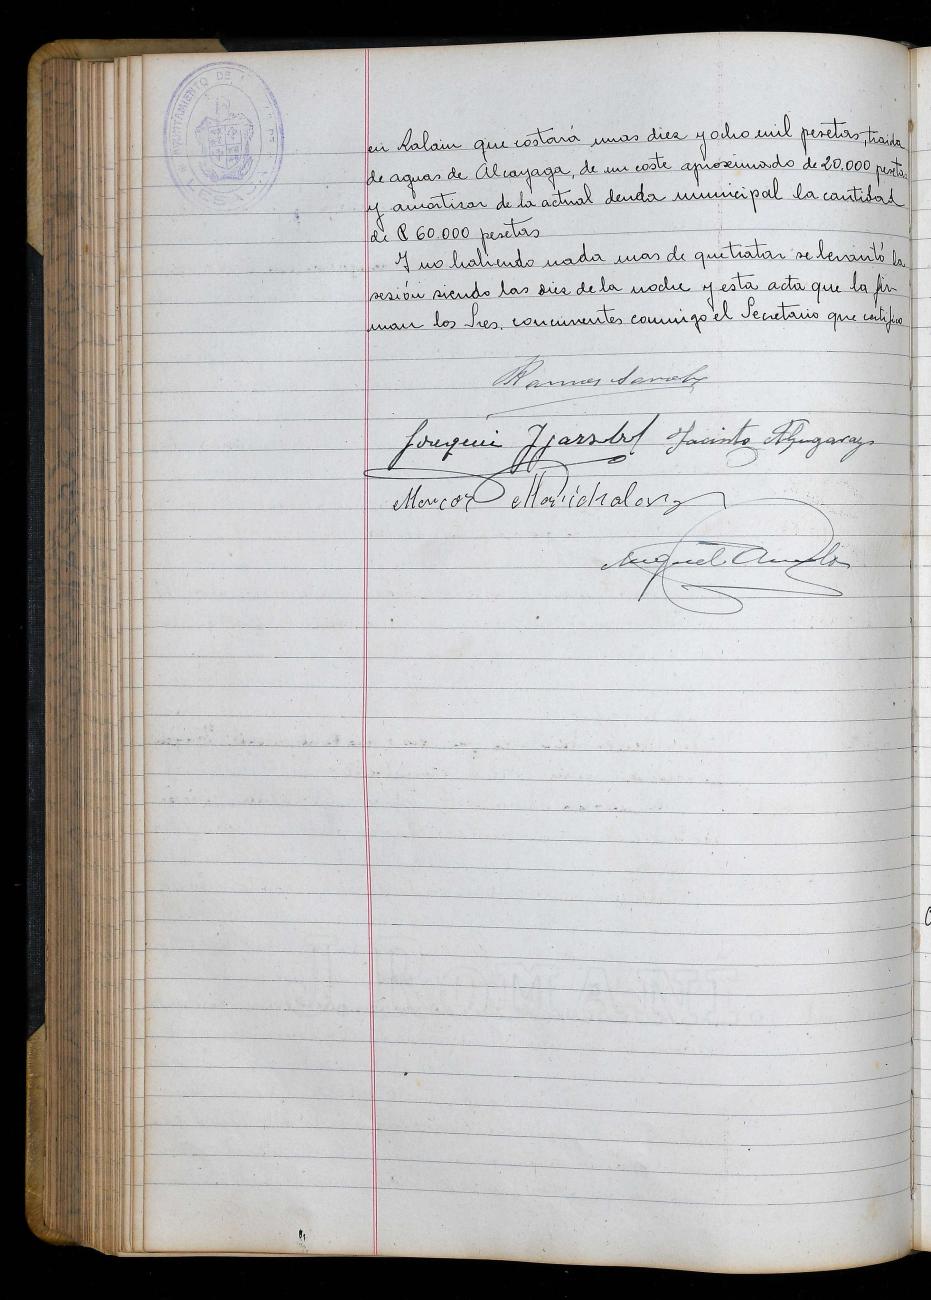 AYUNTAMIENTO DE
en Ralain que costará unas diez y ocho mil pesetas, traida
de aguas de Alcayaga, de un coste aproximado de 20.000 pesetas
y amortizar de la actual deuda municipal la cantidad
de 60.000 pesetas
Y no habiendo nada mas de que tratar se levantó la
sesión siendo las diez de la noche y esta acta que la fir-
man los Sres. concurrentes conmigo el Secretario que certifico
Joaquin
Jacinto
Marcos Marichalar
Miguel